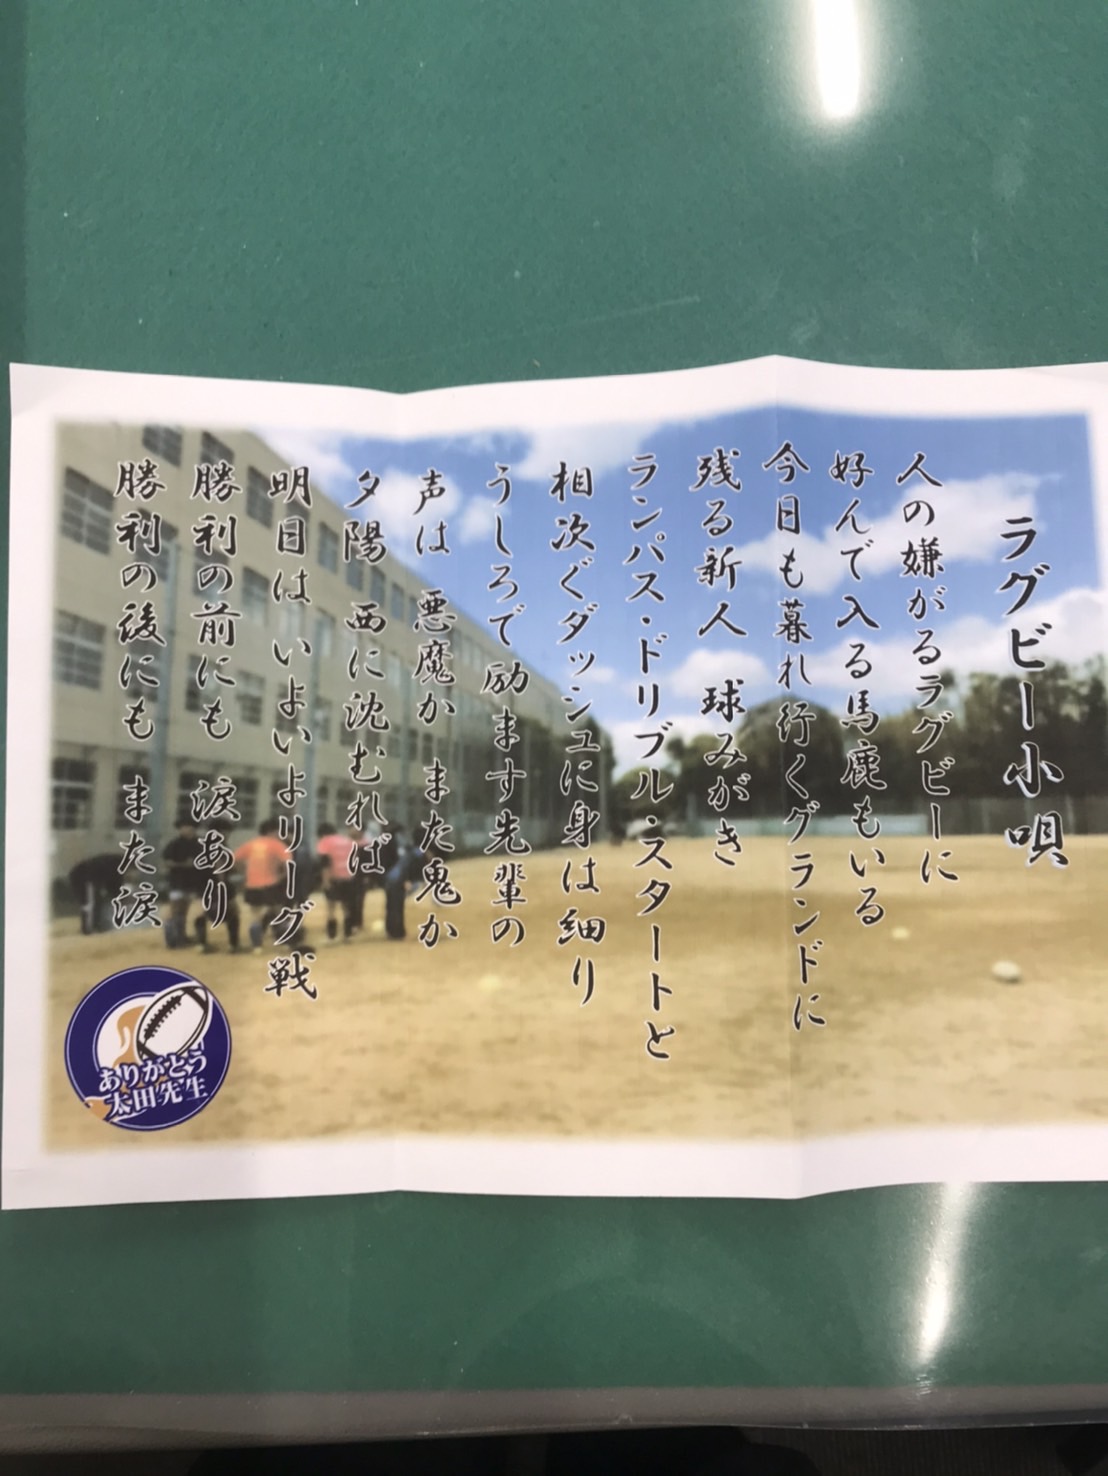 ラグビー小唄
人の嫌がるラグビーに
好んで入る馬鹿もいる
今日も暮れ行くグランドに
残る新人 球みがき
ランパス・ドリブル・スタートと
相次ぐダッシュに身は細り
うしろで励ます先輩の
声は 悪魔か また鬼か
夕陽 西に沈むれば
明日はいよいよリーグ戦
勝利の前にも 涙あり
勝利の後にも また涙
ありがとう
太田先生